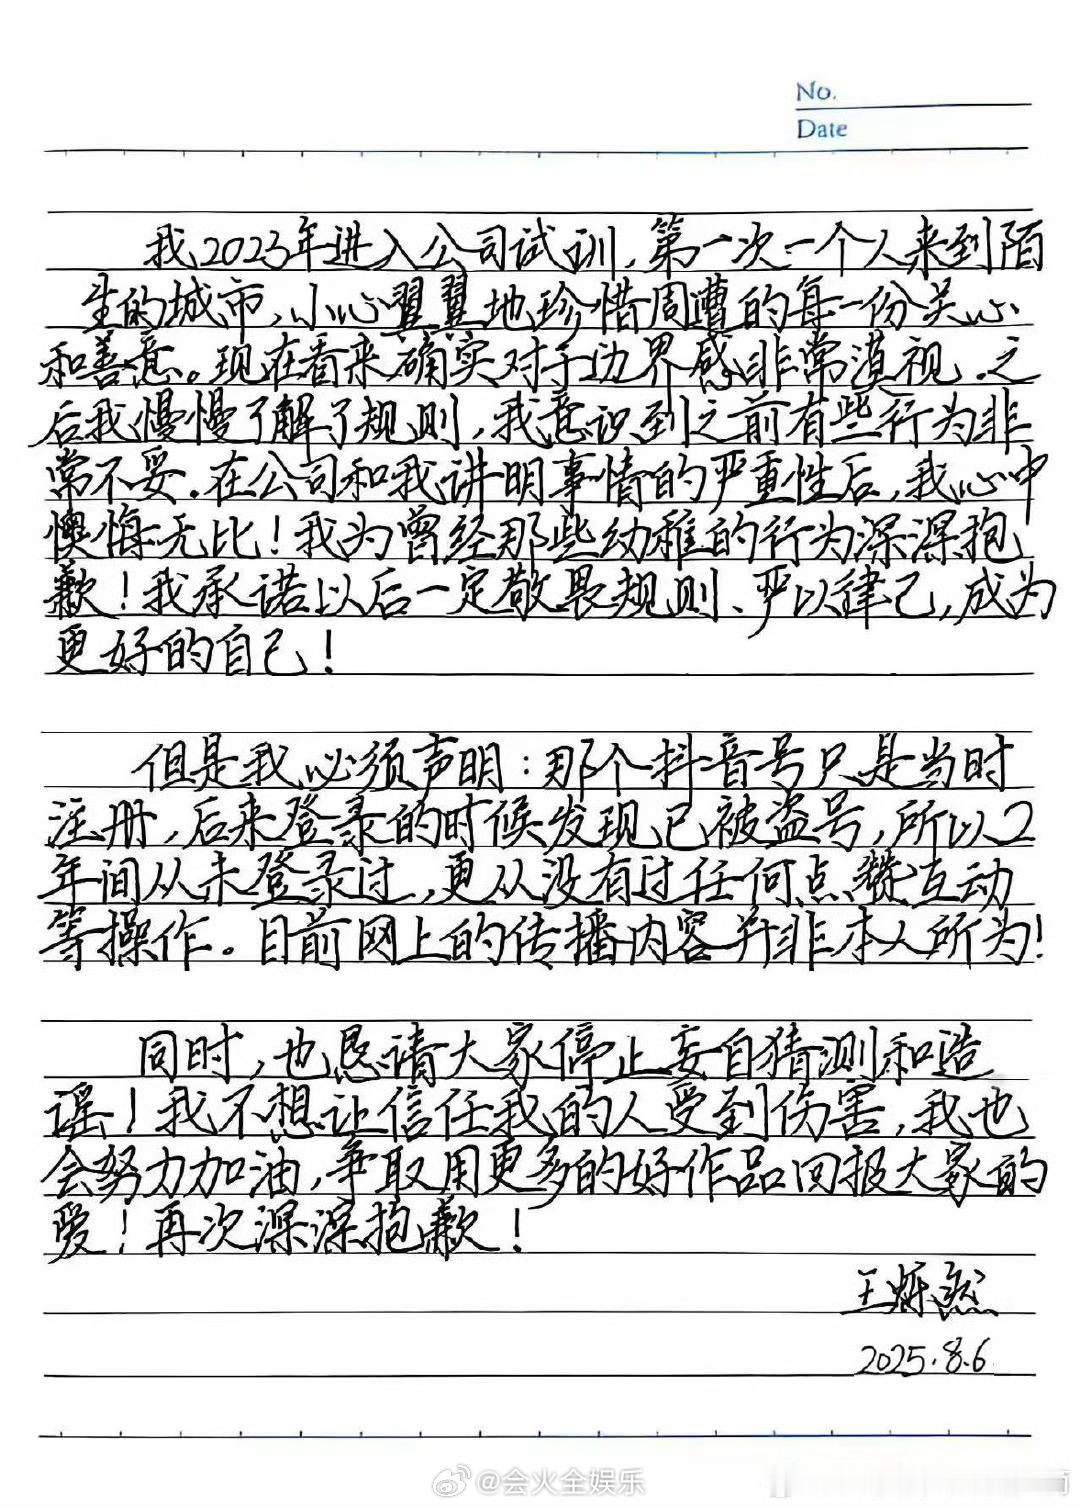 No.
Date
我2023年进入公司试训，第一次一个人来到陌
生的城市，小心翼翼地珍惜周遭的每一份关心
和善意。现在看来确实对于边界感非常漠视．之
后我慢慢了解了规则，我意识到之前有些行为非
常不妥．在公司和我讲明事情的严重性后，我心中
懊悔无比！我为曾经那些幼稚的行为深深抱
歉！我承诺以后一定敬畏规则、严以律己，成为
更好的自己！
但是我必须声明：那个抖音号只是当时
注册，后来登录的时候发现已被盗号，所以2
年间从未登录过，更从没有过任何点赞互动
等操作。目前网上的传播内容并非本人所为！
同时，也恳请大家停止妄自猜测和造
谣！我不想让信任我的人受到伤害，我也
会努力加油，争取用更多的好作品回报大家的
爱！再次深深抱歉！
王烁然
2025.8.6
@会火全娱乐